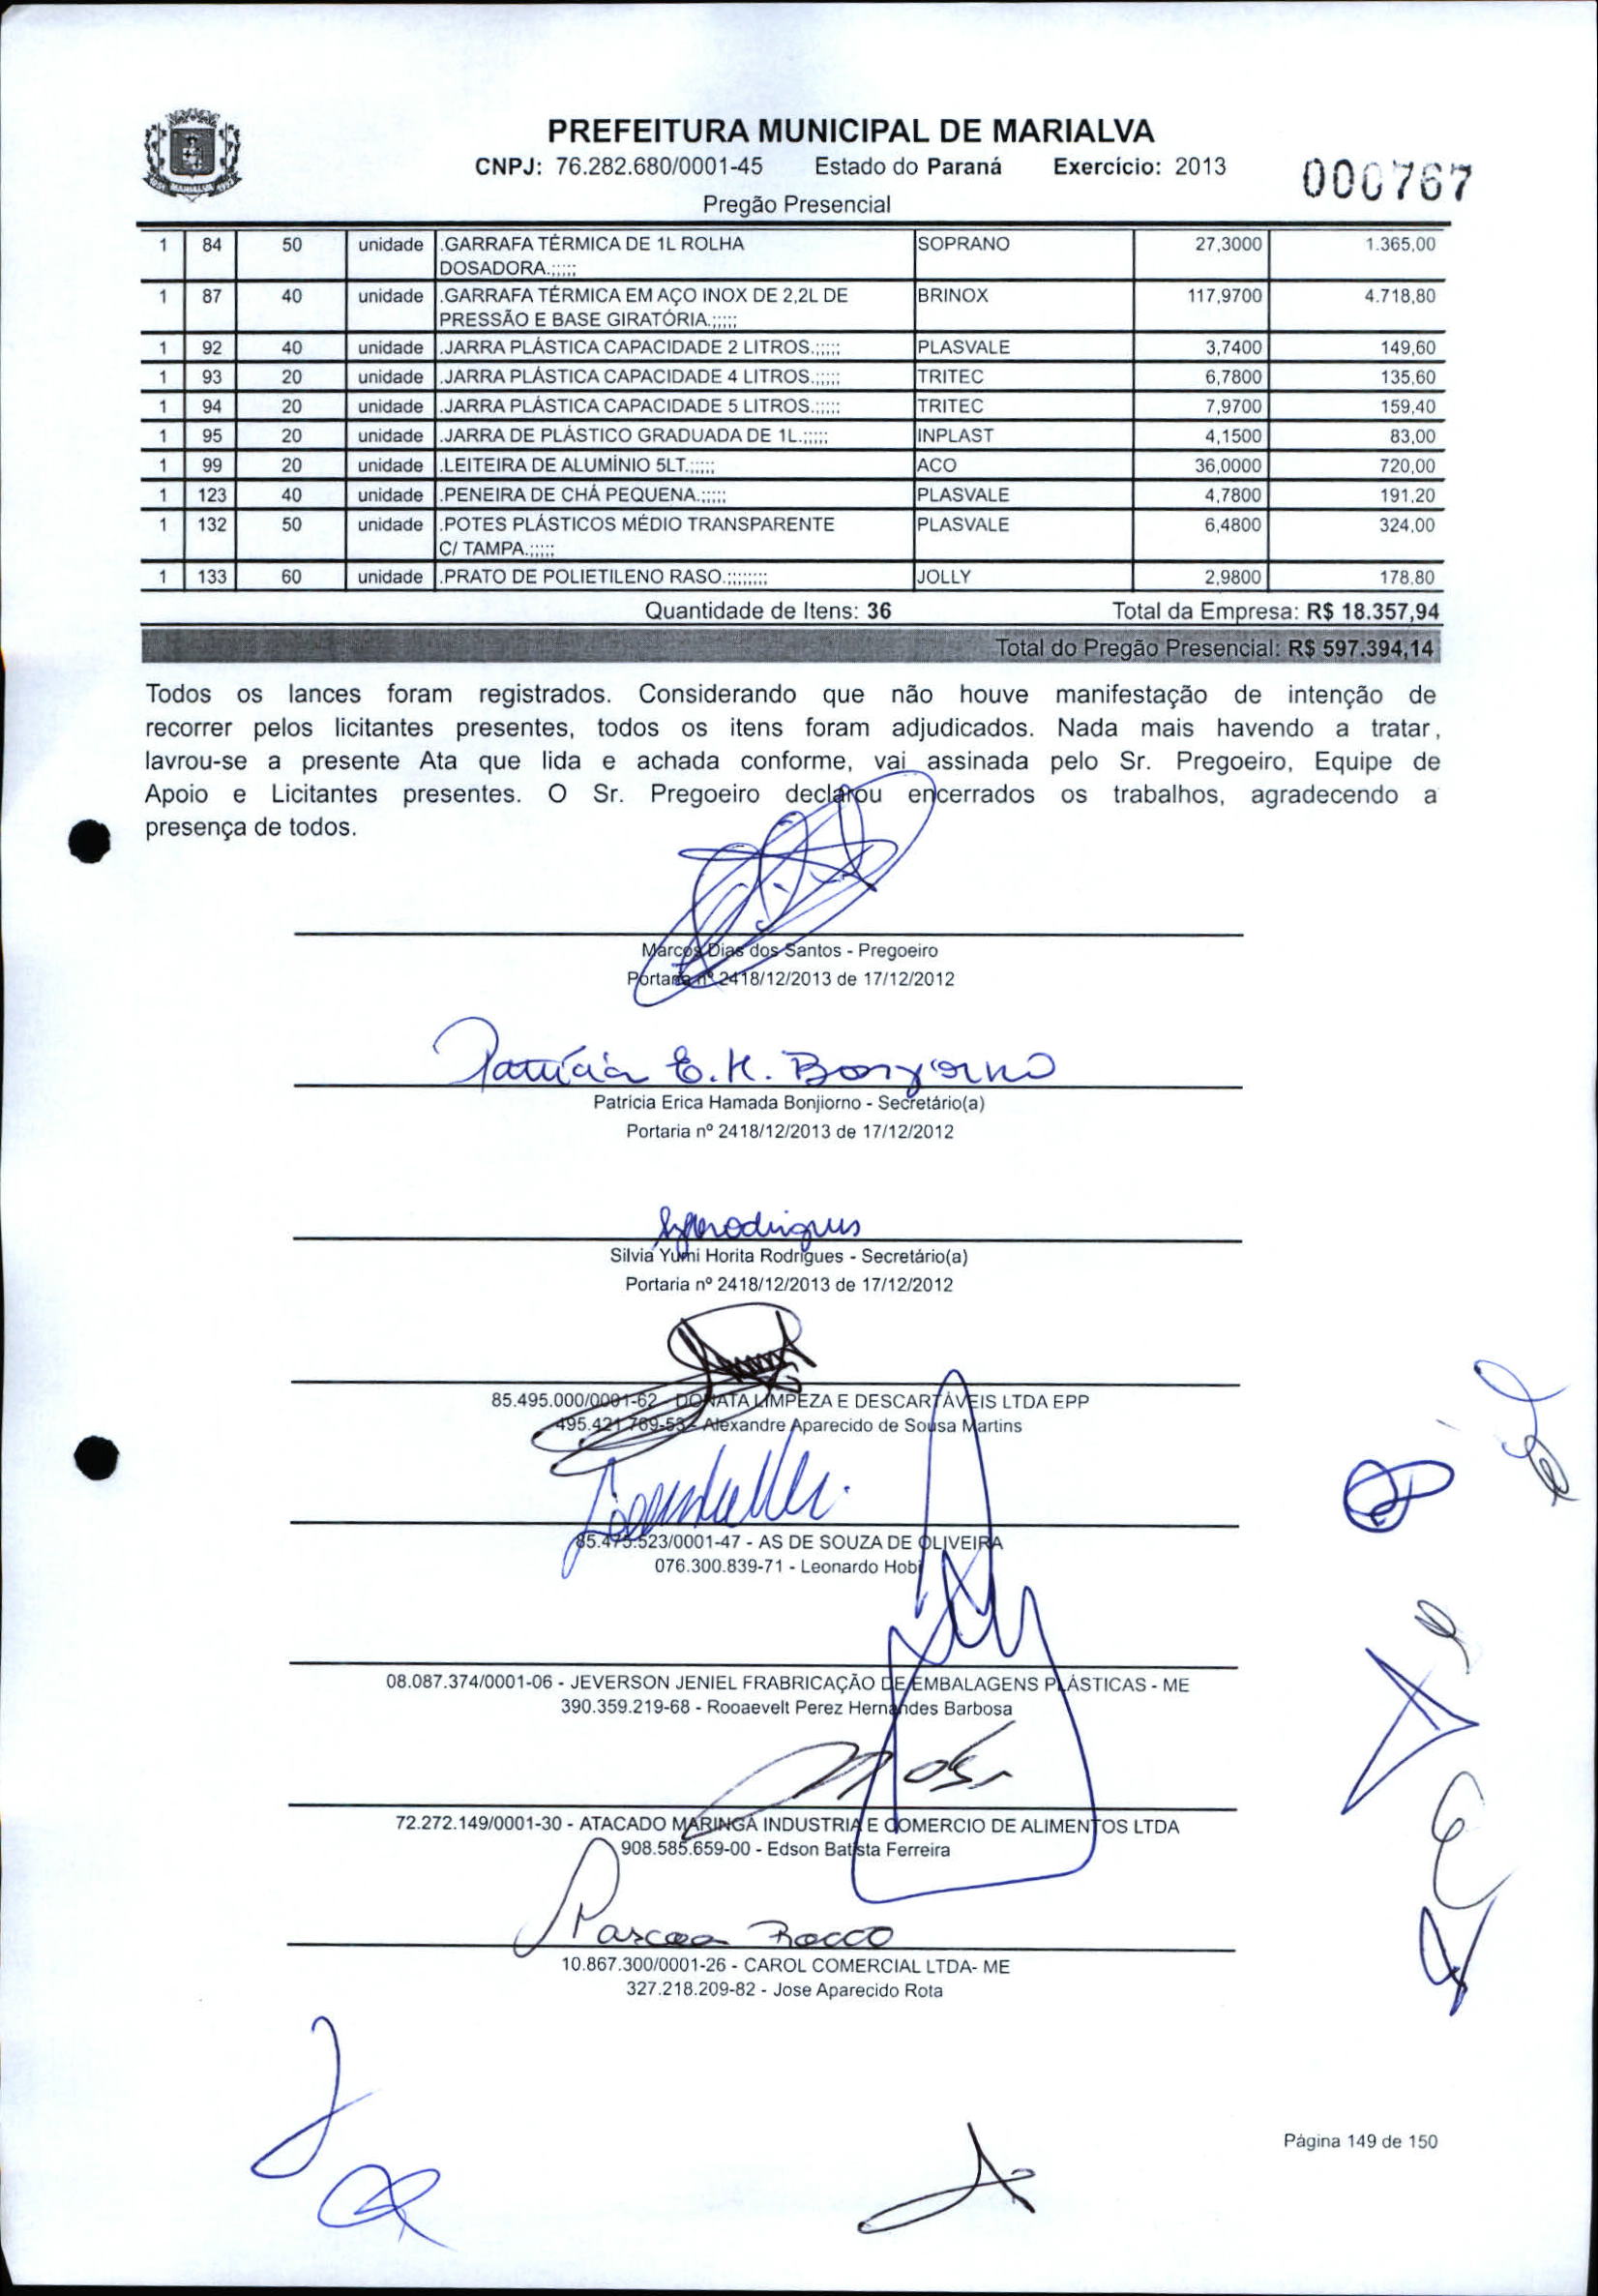 PREFEITURA MUNICIPAL DE MARIALVA
CNPJ: 76.282.680/0001-45 Estado do Paraná Exercício: 2013
000767
Pregão Presencial
1 84 50 unidade .GARRAFA TÉRMICA DE 1L ROLHA SOPRANO 27,3000 1.365,00
DOSADORA.;;;;;
1 87 40 unidade .GARRAFA TÉRMICA EM AÇO INOX DE 2,2L DE BRINOX 117,9700 4.718,80
PRESSÃO E BASE GIRATÓRIA.;;;;;
1 92 40 unidade .JARRA PLÁSTICA CAPACIDADE 2 LITROS.;;;;; PLASVALE 3,7400 149,60
1 93 20 unidade .JARRA PLÁSTICA CAPACIDADE 4 LITROS.;;;;; TRITEC 6,7800 135,60
1 94 20 unidade .JARRA PLÁSTICA CAPACIDADE 5 LITROS.;;;;; TRITEC 7,9700 159,40
1 95 20 unidade .JARRA DE PLÁSTICO GRADUADA DE 1L.;;;;; INPLAST 4,1500 83,00
1 99 20 unidade .LEITEIRA DE ALUMÍNIO 5LT.;;;;; ACO 36,0000 720,00
1 123 40 unidade .PENEIRA DE CHÁ PEQUENA.;;;;; PLASVALE 4,7800 191,20
1 132 50 unidade .POTES PLÁSTICOS MÉDIO TRANSPARENTE PLASVALE 6,4800 324,00
C/ TAMPA.;;;;;
1 133 60 unidade .PRATO DE POLIETILENO RASO.;;;;;;;; JOLLY 2,9800 178,80
Quantidade de Itens: 36 Total da Empresa: R$ 18.357,94
Total do Pregão Presencial: R$ 597.394,14
Todos os lances foram registrados. Considerando que não houve manifestação de intenção de
recorrer pelos licitantes presentes, todos os itens foram adjudicados. Nada mais havendo a tratar,
lavrou-se a presente Ata que lida e achada conforme, vai assinada pelo Sr. Pregoeiro, Equipe de
Apoio e Licitantes presentes. O Sr. Pregoeiro declarou encerrados os trabalhos, agradecendo a
presença de todos.
Marcos Dias dos Santos - Pregoeiro
Portaria nº 2418/12/2013 de 17/12/2012
Patrícia E. H. Bonjiorno
Patricia Erica Hamada Bonjiorno - Secretário(a)
Portaria nº 2418/12/2013 de 17/12/2012
Silvia Yumi Horita Rodrigues - Secretário(a)
Portaria nº 2418/12/2013 de 17/12/2012
85.495.000/0001-62 - DONATA LIMPEZA E DESCARTÁVEIS LTDA EPP
495.421.769-53 - Alexandre Aparecido de Sousa Martins
85.475.523/0001-47 - AS DE SOUZA DE OLIVEIRA
076.300.839-71 - Leonardo Hobi
08.087.374/0001-06 - JEVERSON JENIEL FRABRICAÇÃO DE EMBALAGENS PLÁSTICAS - ME
390.359.219-68 - Rooaevelt Perez Hernandes Barbosa
72.272.149/0001-30 - ATACADO MARINGA INDUSTRIA E COMERCIO DE ALIMENTOS LTDA
908.585.659-00 - Edson Batista Ferreira
10.867.300/0001-26 - CAROL COMERCIAL LTDA- ME
327.218.209-82 - Jose Aparecido Rota
Página 149 de 150